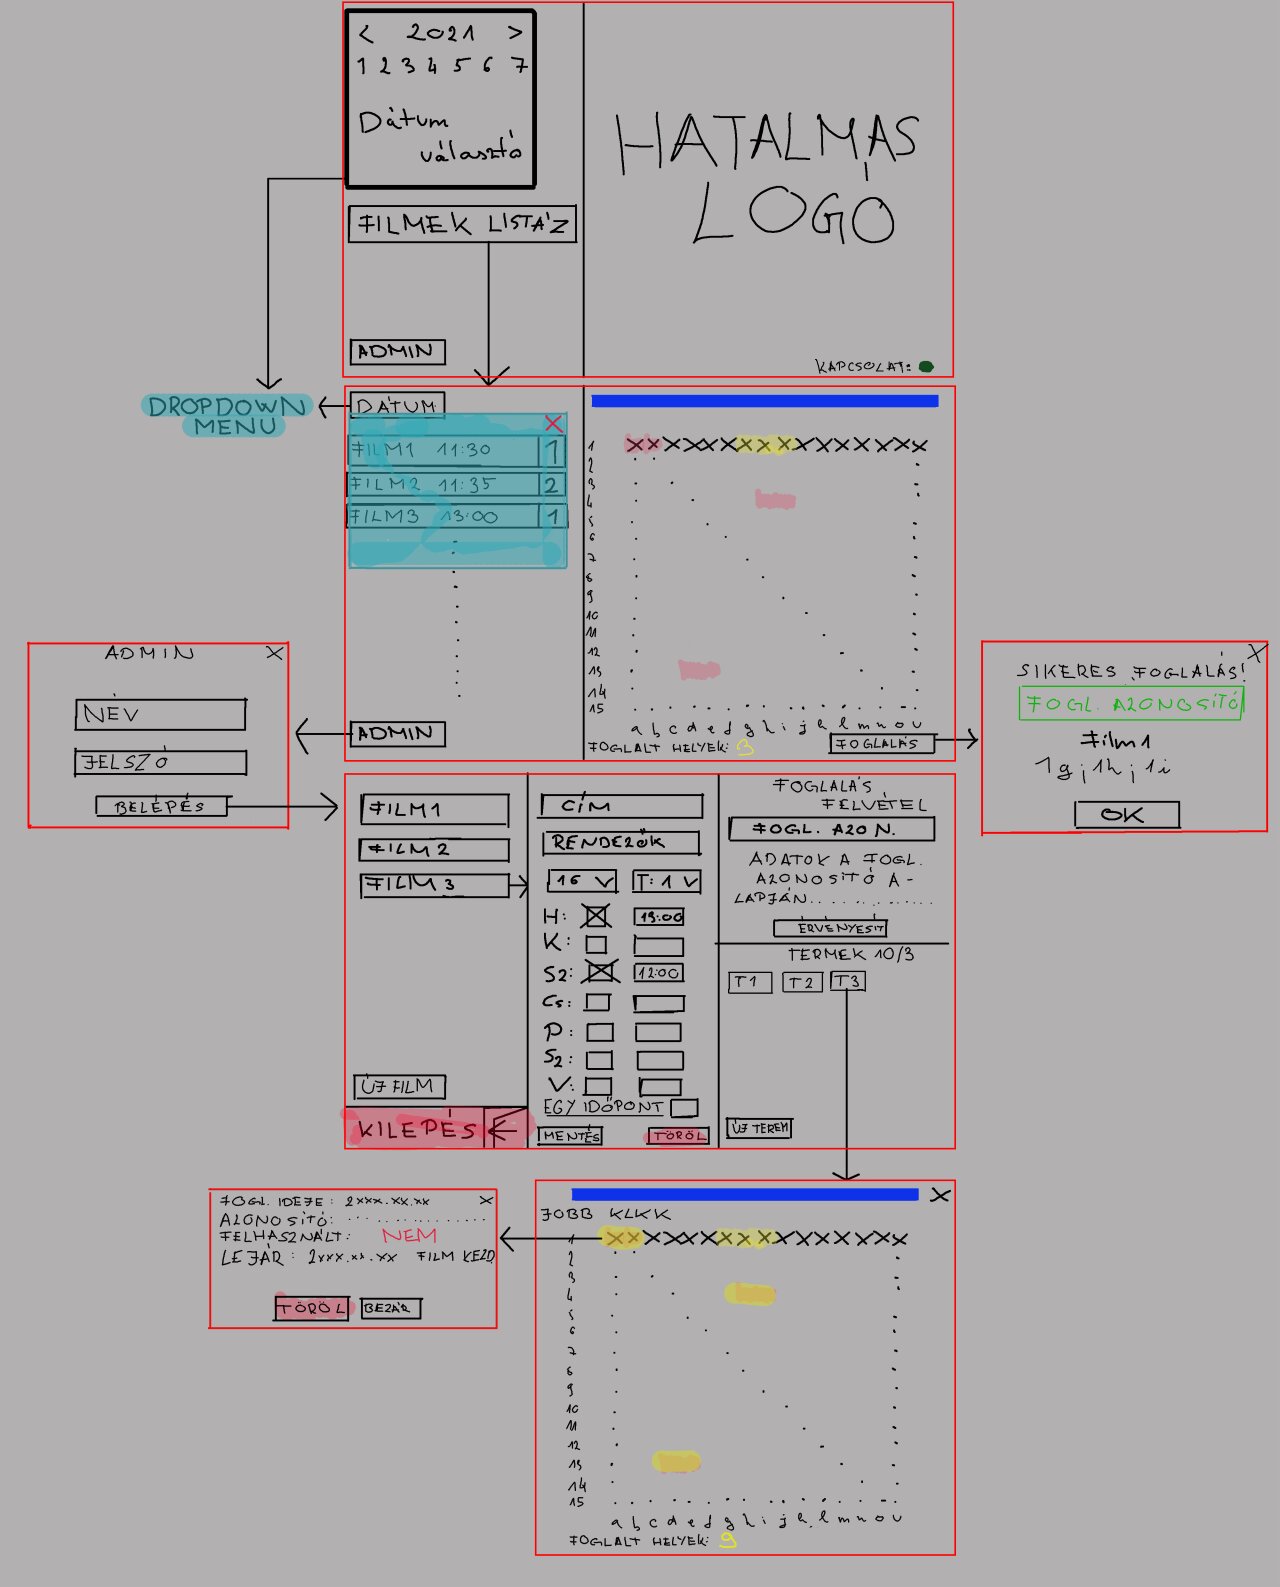 < 2021 >
1 2 3 4 5 6 7
Dátum
választó
FILMEK LISTÁZ
ADMIN
HATALMAS
LOGÓ
KAPCSOLAT:
DROPDOWN
MENU
DÁTUM
X
FILM1 11:30 1
FILM2 11:35 2
FILM3 13:00 1
ADMIN
1 X X X X X X X X X X X X X X X
2
3
4
5
6
7
8
9
10
11
12
13
14
15
a b c d e f g h i j k l m n o u
FOGLALT HELYEK: 3
FOGLALÁS
ADMIN X
NÉV
JELSZÓ
BELÉPÉS
X
SIKERES FOGLALÁS!
FOGL. AZONOSÍTÓ
Film1
1g;1h;1i
OK
FILM1
FILM2
FILM3
ÚJ FILM
KILÉPÉS
CÍM
RENDEZŐK
16 V T:1 V
H: 19:00
K:
SZ: 12:00
Cs:
P:
SZ:
V:
EGY IDŐPONT
MENTÉS TÖRÖL
FOGLALÁS
FELVÉTEL
FOGL. AZON.
ADATOK A FOGL.
AZONOSÍTÓ A-
LAPJÁN..............
ÉRVÉNYESÍT
TERMEK 10/3
T1 T2 T3
ÚJ TEREM
FOGL. IDEJE: 2xxx.xx.xx X
AZONOSÍTÓ: ................
FELHASZNÁLT: NEM
LEJÁR: 2xxx.xx.xx FILM KEZD
TÖRÖL BEZÁR
X
JOBB KLKK
1 X X X X X X X X X X X X X X X
2
3
4
5
6
7
8
9
10
11
12
13
14
15
a b c d e f g h i j k l m n o u
FOGLALT HELYEK: 9